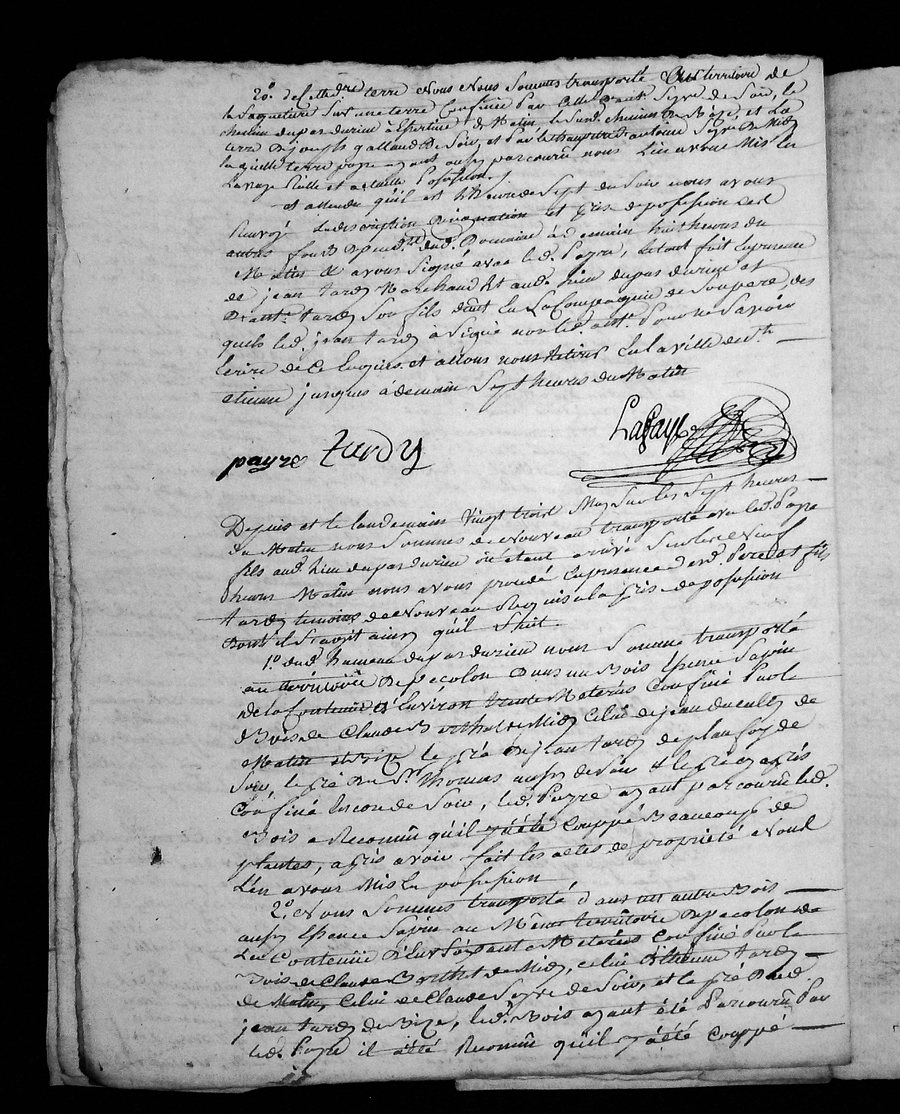 20.° de ladte terre Nous Nous Sommes transporté au territoire de
la Saqueture Sur une terre Confinée par celle d'ant. Seyve de Soir, le
chemin du pas durieu à de matin le Sud. chemin de Bize, et La
terre de joseph gallaud de Soir, et par le d'antoine Seyve de Midy
laquelle terre payre ayant aussy parcouru nous L'en avons Mis en
La vraye Reelle et actuelle Possession.
et attendu qu'il est l'heure de Sept du Soir nous avons
Renvoyé La description et prise de possession des
autres fonds dud. Domaine à demain huit heures du
Matin & avons Signé avec led. Payre, le tout fait En presence
de jean tardy Marchand ht aud. lieu du pas durieu et
D'ante. tardy Son fils étant En La Compagnie de Soupere, des
quels led. jean tardy à Signé non led. ant. Pour ne Savoir
Ecrire de ce Enquis. et allons nous Retirer En la ville de St.
etienne jusques à demain Sept heures du Matin
payre tardy Lafaye
Depuis et le landemain Vingt trois May Sur les Sept heures
du Matin nous Sommes de Nouveau transporté avec led. Payre
fils aud. lieu du pas durieu où étant arrivé Sur les Neuf
heures Matin nous avons procedé En presence desd. Pere et fils
tardy temoins de Nouveau Requis a la prise de possession
dont il S'agit ainsy qu'il Suit.
1.° dud. hameau du pas durieu nous Somme transporté
au territoire de pecolon Dans un Bois Essence Sapin
de la Contenue d'Environ trente Meterés Confiné Par le
Bois de Claude Berthol de Midy Celui de jean de
Matin et Bize le pré de jean tardy de planfoy de
Soir, le pré du Sr. thomas aussy de Soir & le pré
Confiné Encore de Soir, led. Payre ayant parcouru led.
Bois a Reconnu qu'il y a été Couppé Beaucoup de
plantes, après avoir fait les actes de propriété Nous
L'en avons Mis En possession
2.° Nous Sommes transporté dans un autre Bois
aussy Essence Sapin au Même territoire de pecolon de
La Contenue d'Env. Sixante Meterés Confiné Par le
Bois de Claude Berthol de Midy, celui d'Etienne tardy
de Matin, Celui de Claude Seyve de Soir, et le pré Dud.
jean tardy de Bize, led. Bois ayant été Parcouru Par
led. Payre il a été Reconnu qu'il y a été Couppé